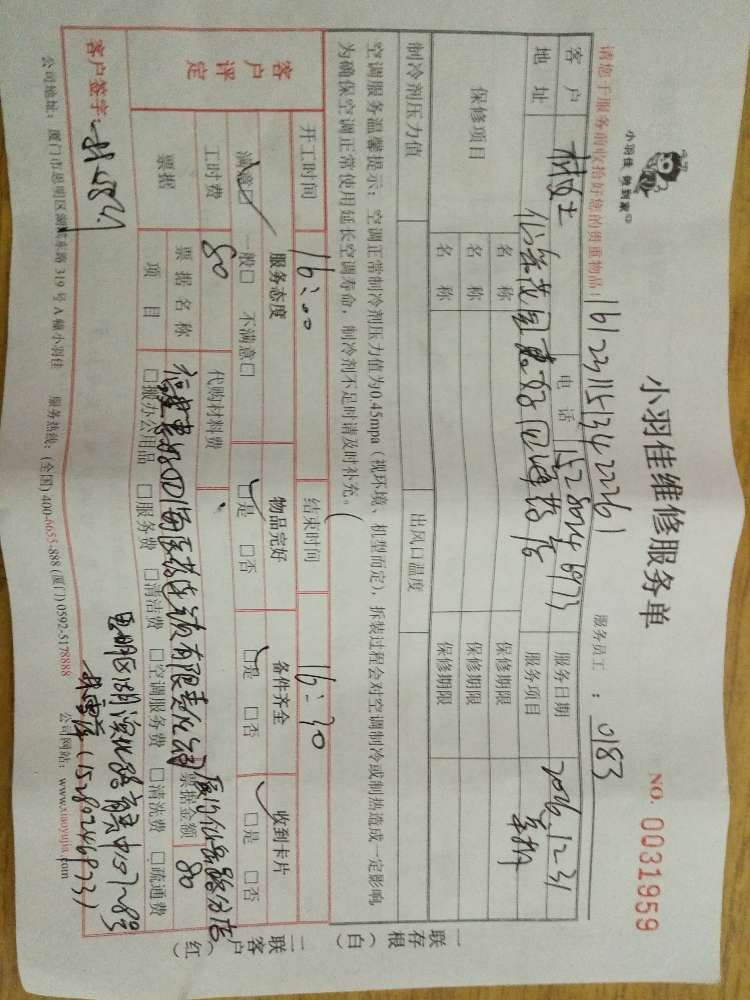 小羽佳 做到家
小羽佳维修服务单
NO. 0031959
请您于服务前收拾好您的贵重物品!
16122311513422261
服务员工 : 0183
客户 林女士 电话 15280246973 服务日期 2016.12.31
地址 仙岳花园 四海药店 服务项目
保修项目 名称 保修期限
名称 保修期限
名称 保修期限
制冷剂压力值 出风口温度
空调服务温馨提示:空调正常制冷剂压力值为0.45mpa(视环境、机型而定),拆装过程会对空调制冷或制热造成一定影响,
为确保空调正常使用延长空调寿命,制冷剂不足时请及时补充。
开工时间 16:00 结束时间 16:30
客户评定 服务态度 物品完好 备件齐全 收到卡片
满意□ 一般□ 不满意□ □是 □否 □是 □否 □是 □否
工时费 80 代购材料费
票据 票据名称 四海医药连锁有限责任公司厦门仙岳路分店 票据金额 80
项目 □报办公用品 □服务费 □清洁费 □空调服务费 □清洗费 □疏通费
客户签字:
思明区湖滨北路
(15280246973)
公司地址:厦门市思明区湖滨东路 319 号 A 幢小羽佳 服务热线:(全国) 400-6655-888 (厦门) 0592-5178888 公司网站:www.xiaoyujia.com
一联存根(白)
二联客户(红)